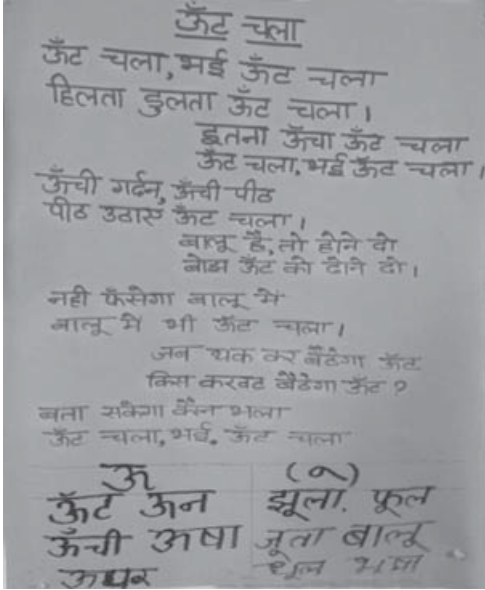 ऊँट चला
ऊँट चला, भई ऊँट चला
हिलता डुलता ऊँट चला।
इतना ऊँचा ऊँट चला
ऊँट चला, भई ऊँट चला।
ऊँची गर्दन, ऊँची पीठ
पीठ उठाए ऊँट चला।
बालू है, तो होने दो
बोझ ऊँट को ढोने दो।
नही फँसेगा बालू में
बालू में भी ऊँट चला।
जब थक कर बैठेगा ऊँट
किस करवट बैठेगा ऊँट?
बता सकेगा कौन भला
ऊँट चला, भई, ऊँट चला
ऊ (ू)
ऊँट ऊन झूला. फूल
ऊँची ऊषा जूता बालू
ऊपर